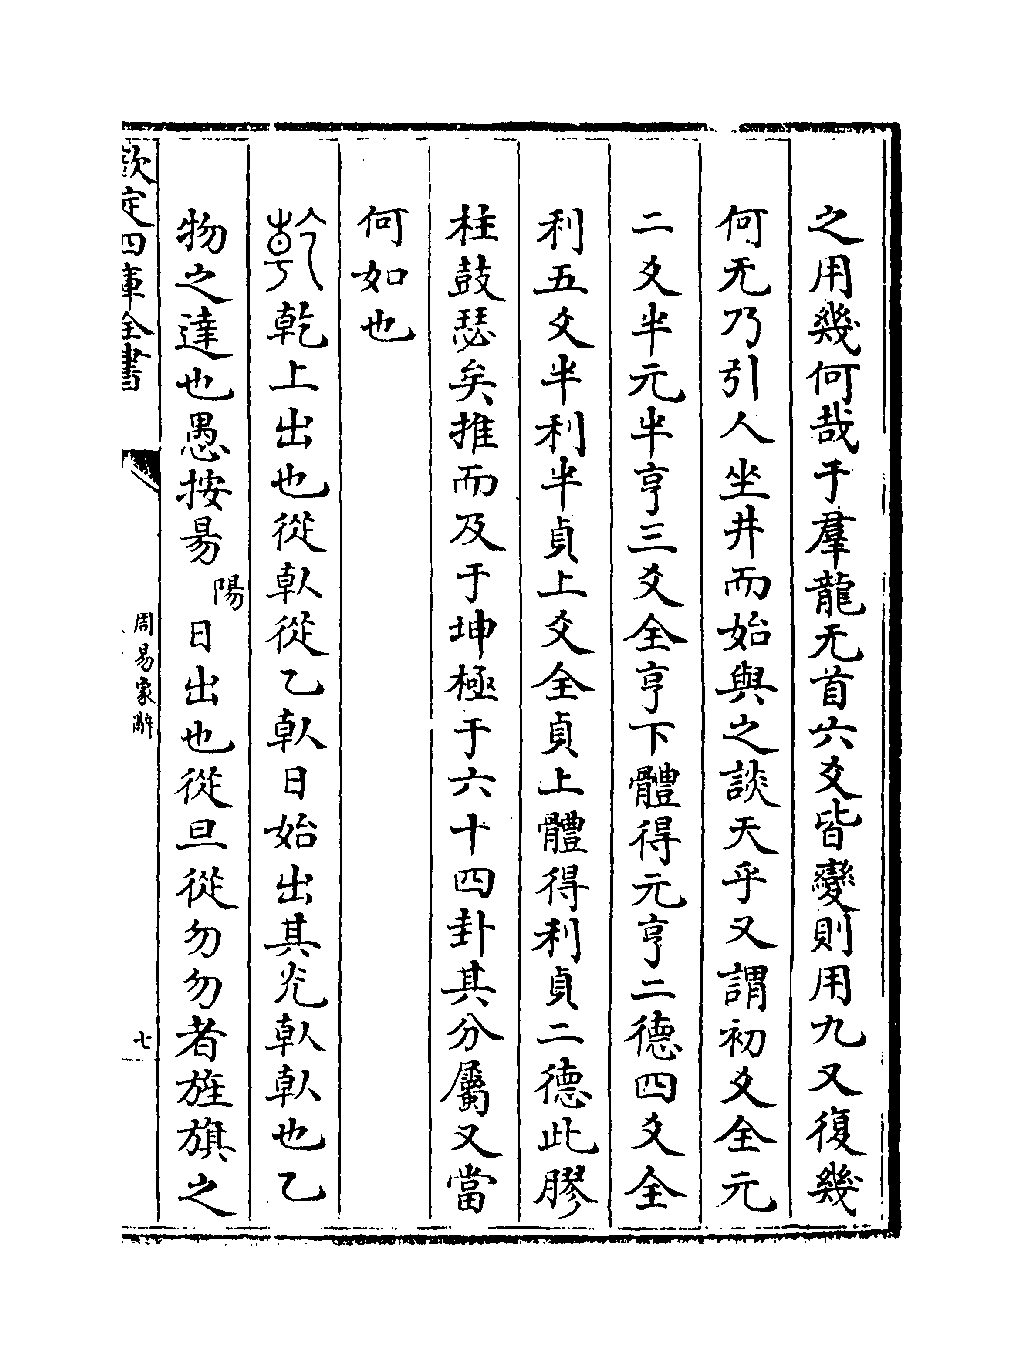 之用幾何哉于羣龍无首六爻皆變則用九又復幾
何无乃引人坐井而始與之談天乎又謂初爻全元
二爻半元半亨三爻全亨下體得元亨二德四爻全
利五爻半利半貞上爻全貞上體得利貞二德此膠
柱鼓瑟矣推而及于坤極于六十四卦其分屬又當
何如也
乾乾上出也從倝從乙倝日始出其光倝倝也乙
物之達也愚按昜陽日出也從旦從勿勿者旌旗之
欽定四庫全書
周易象辭
七